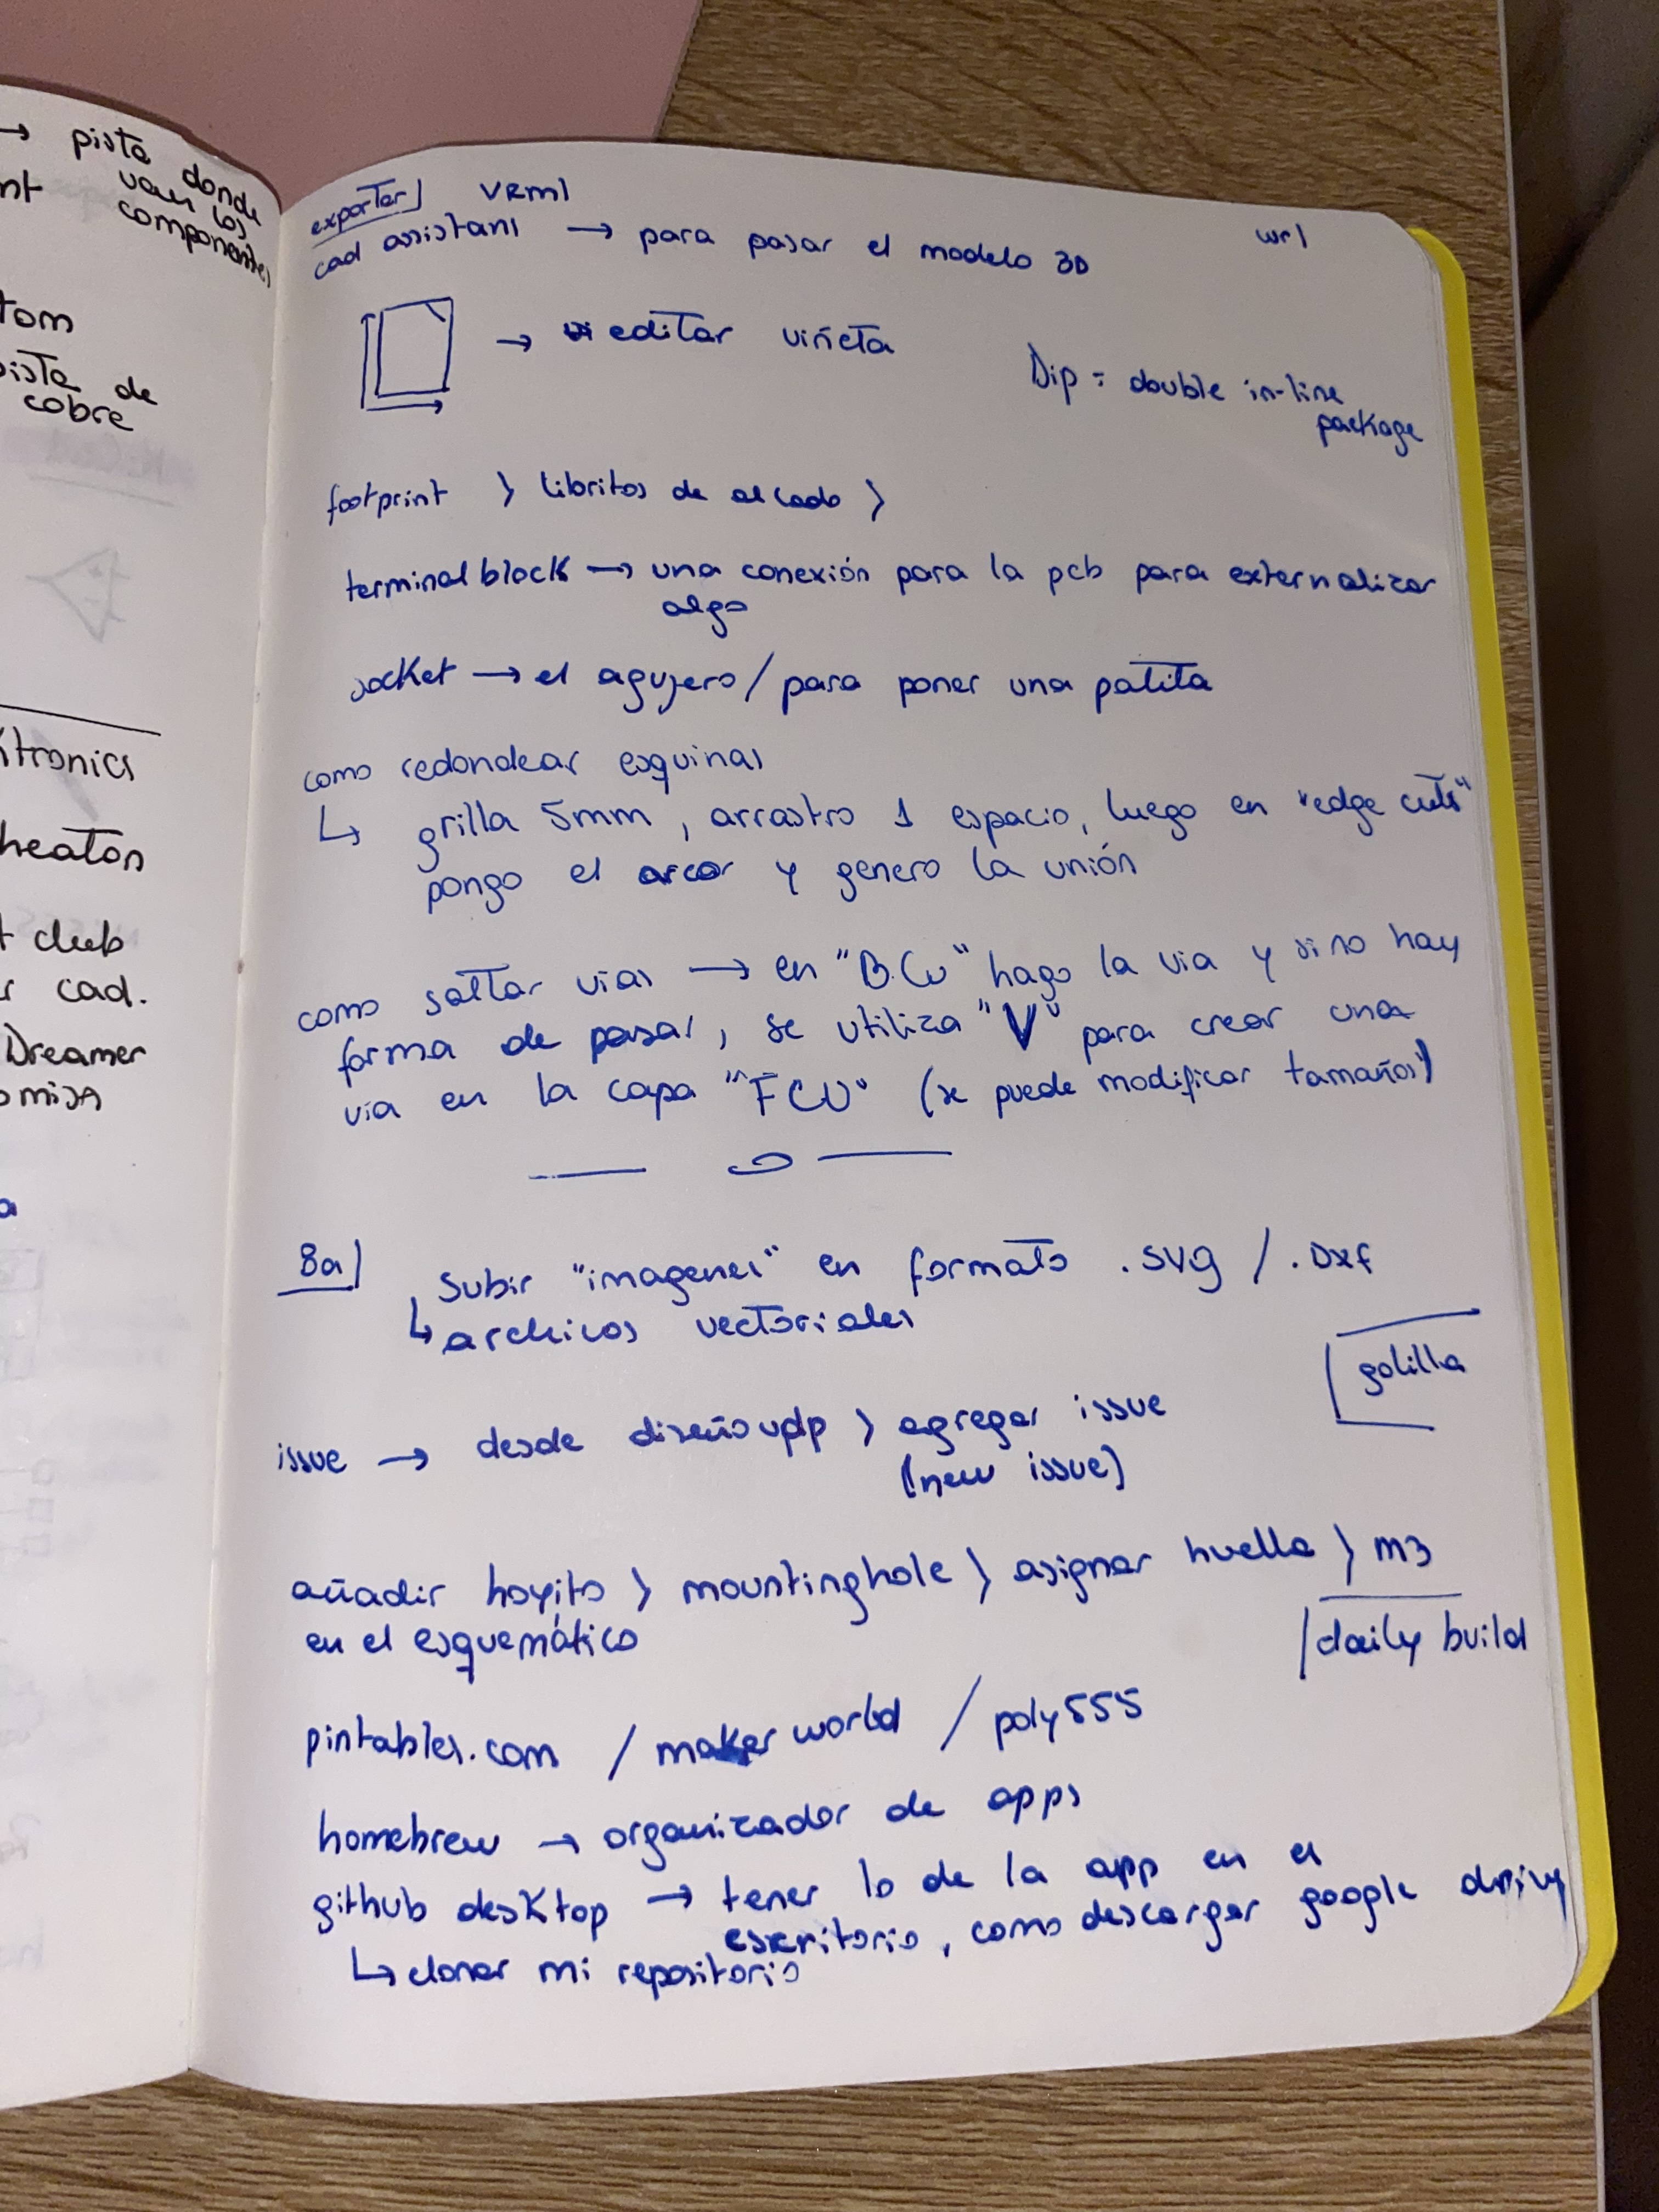 → pista donde
van los
componentes
nt
tom
pista de
cobre
itronics
heaton
t club
r cad.
Dreamer
omisa
a
exportar VRml
cad assistant → para pasar el modelo 3D
wrl
→ editar viñeta
Dip = double in-line
package
footprint > libritos de al lado >
terminal block → una conexión para la pcb para externalizar
algo
socket → el agujero / para poner una patita
como redondear esquinas
↳ grilla 5mm, arrastro 1 espacio, luego en "edge cuts"
pongo el arco y genero la unión
como saltar vias → en "B.Cu" hago la via y si no hay
forma de pasar, se utiliza "V" para crear una
via en la capa "FCU" (se puede modificar tamaños)
8a
subir "imagenes" en formato .svg / .Dxf
↳ archivos vectoriales
golilla
issue → desde diseñoudp > agregar issue
(new issue)
añadir hoyito > mountinghole > asignar huella > m3
en el esquemático
daily build
pintables.com / maker world / poly555
homebrew → organizador de apps
github desktop → tener lo de la app en el
escritorio, como descargar google driv
↳ clonar mi repositorio